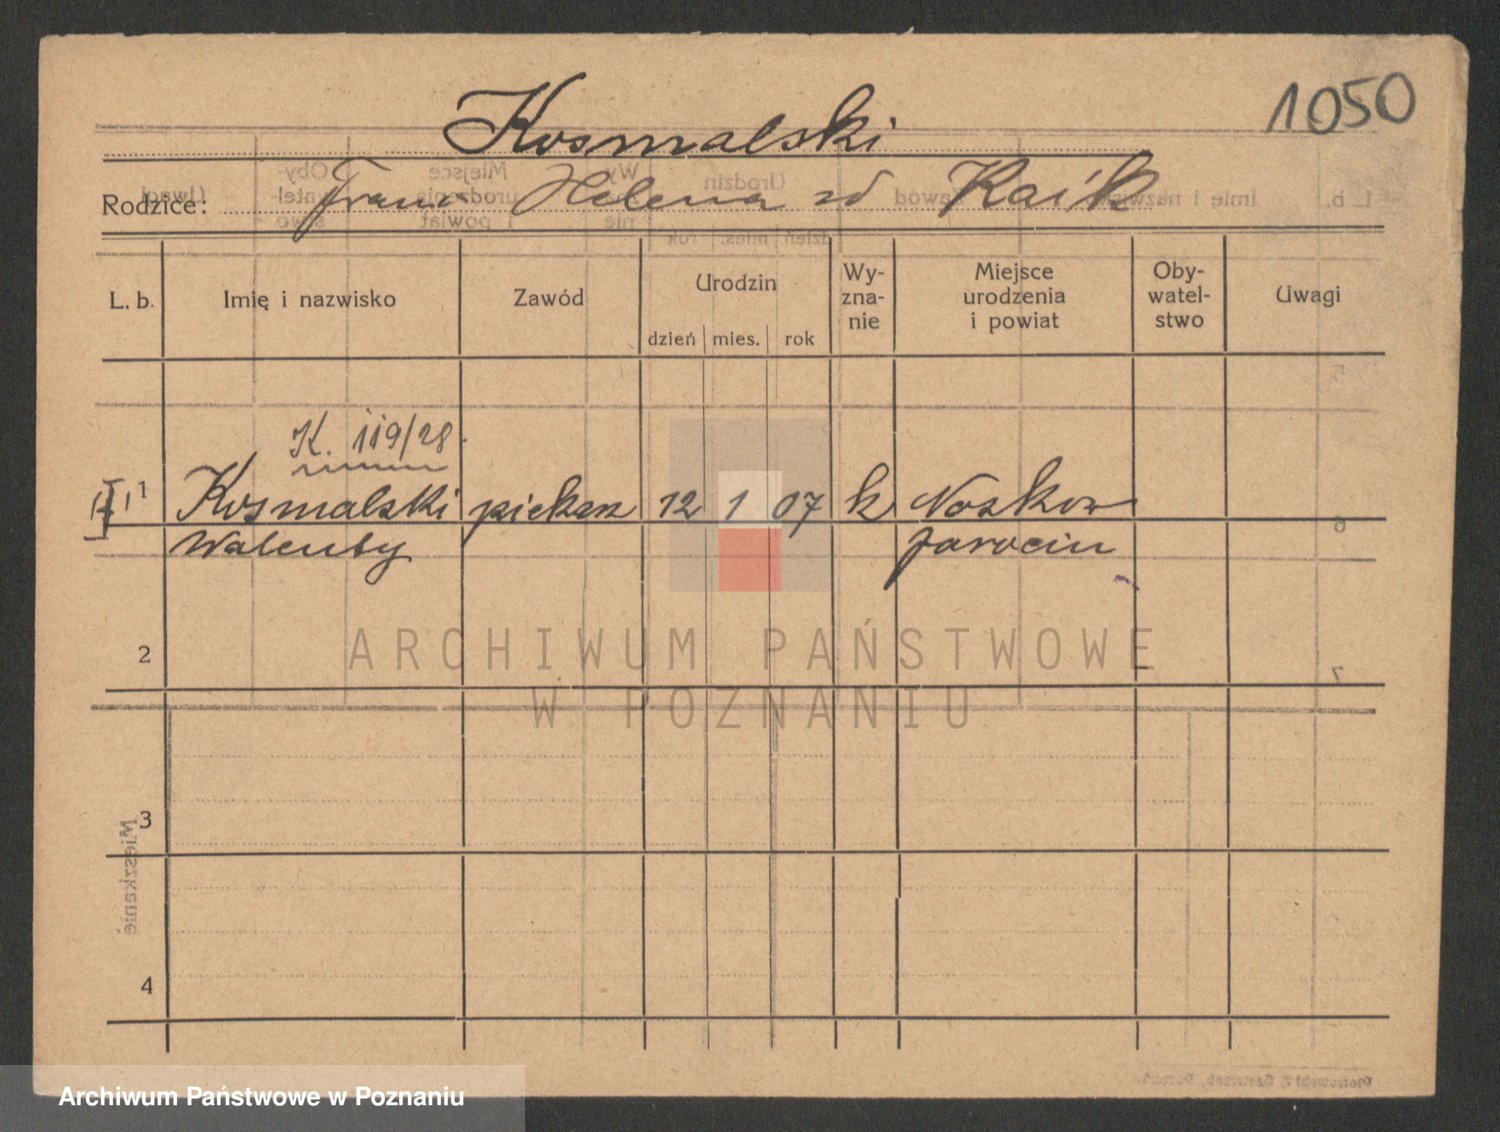 1050
Kosmalski
Rodzice: Franc Helena zd Kaik
L. b. Imię i nazwisko Zawód Urodzin dzień mies. rok Wy-zna-nie Miejsce urodzenia i powiat Oby-watel-stwo Uwagi
K. 119/28
1 Kosmalski piekarz 12 1 07 k Noskow
Walenty Jarocin
2
ARCHIWUM PAŃSTWOWE
W POZNANIU
3
Mieszkanie
4
Archiwum Państwowe w Poznaniu